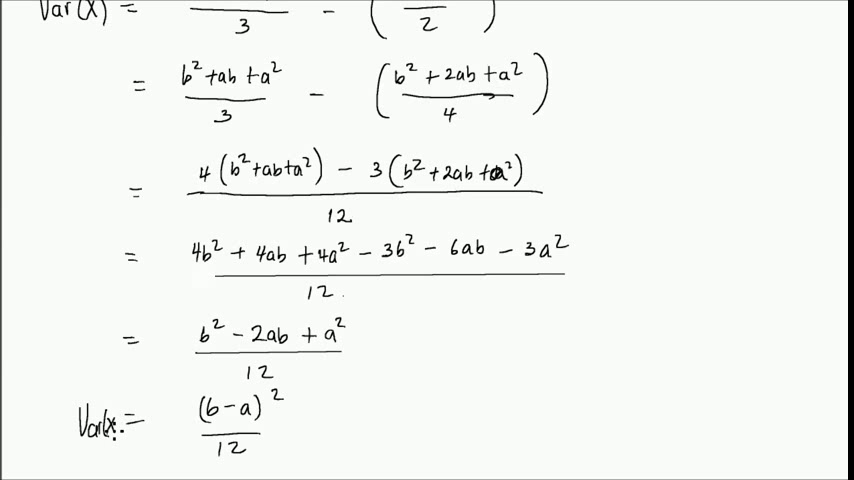 Var(X) = / 3 - ( / 2 )
= (b² + ab + a²) / 3 - ( (b² + 2ab + a²) / 4 )
= (4(b² + ab + a²) - 3(b² + 2ab + a²)) / 12
= (4b² + 4ab + 4a² - 3b² - 6ab - 3a²) / 12
= (b² - 2ab + a²) / 12
Var(x = (b - a)² / 12